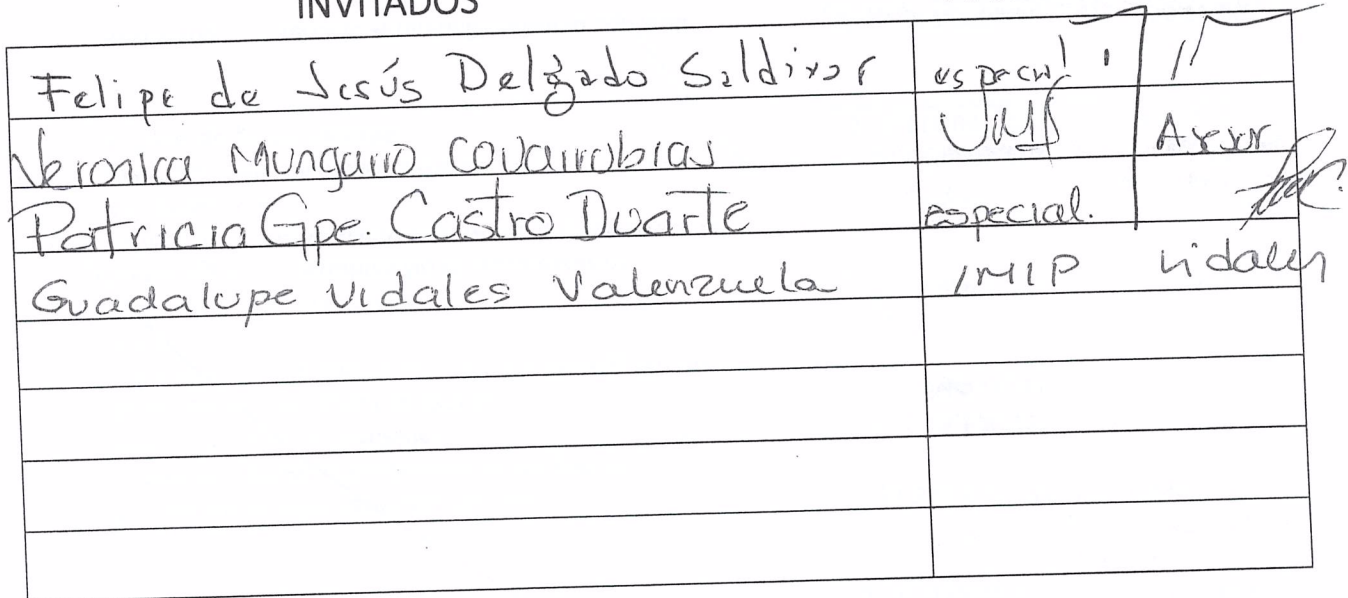 INVITADOS
Felipe de Jesús Delgado Saldivar especial
Veronica Mungarro Covarrubias Asesor
Patricia Gpe. Castro Duarte especial.
Guadalupe Vidales Valenzuela IMIP Vidales